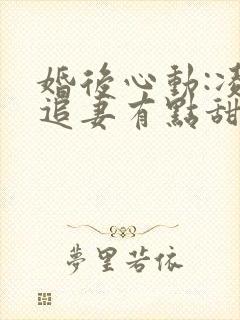 婚後心動:凌
追妻有點甜
夢里若依